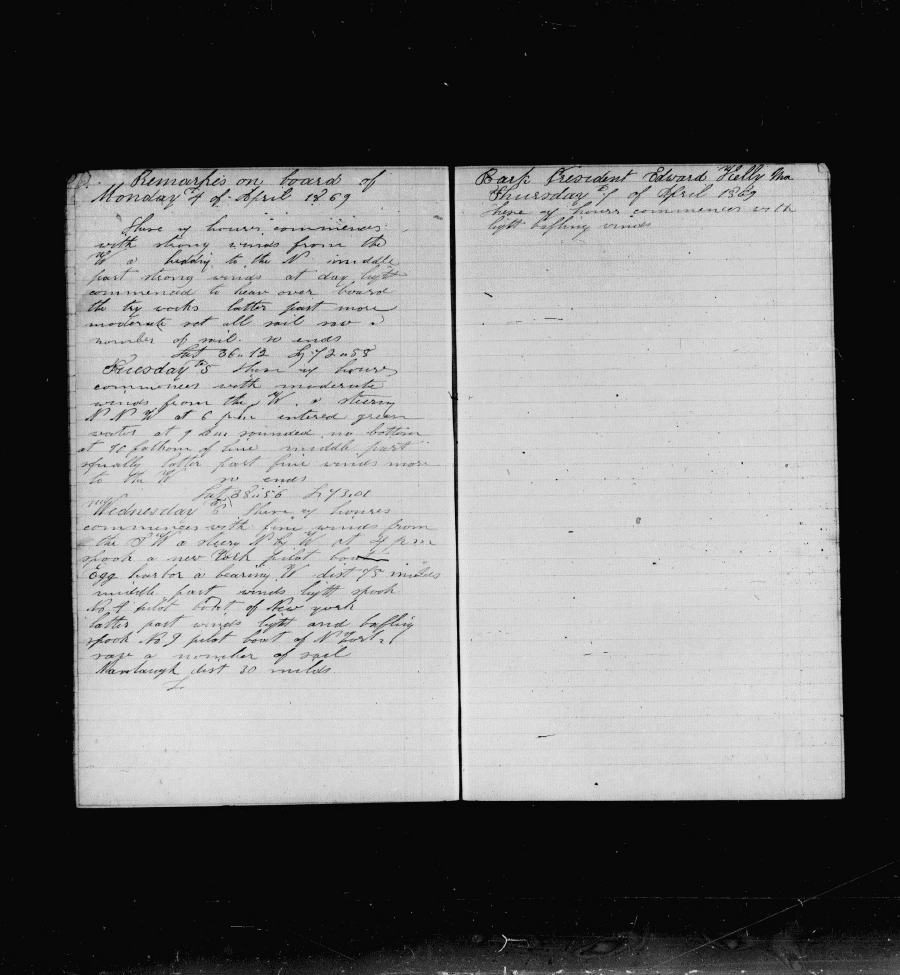 Remarks on board of
Monday 4 of April 1869
These 24 hours commences
with strong winds from the
W a heading to the N middle
part strong winds at day light
commenced to heav over board
the try works latter part more
moderate set all sail saw a
number of sail. so ends
Lat 36..12 Lg 72..58
Tuesday 5 these 24 hours
commences with moderate
winds from the W. a steering
N N W at 6 pm entered green
water at 9 sounded no bottom
at 90 fathom of line middle part
squally latter part fine winds more
to the W so ends
Lat 38..56 Lg 73..01
Wednesday 6 these 24 houres
commences with fine winds from
the S W a steering N by W at 4 p m
spook a new York pilot boat
Egg harbor a bearing W dist 75 miles
middle part winds light spook
No 4 pilot boat of New york
latter part winds light and baffling
spook No 9 pilot boat of N York
saw a number of sail
dist 30 milds
Bark President Edward Kelly Ma
Thursday 7 of April 1869
these 24 hours commences with
light baffling winds